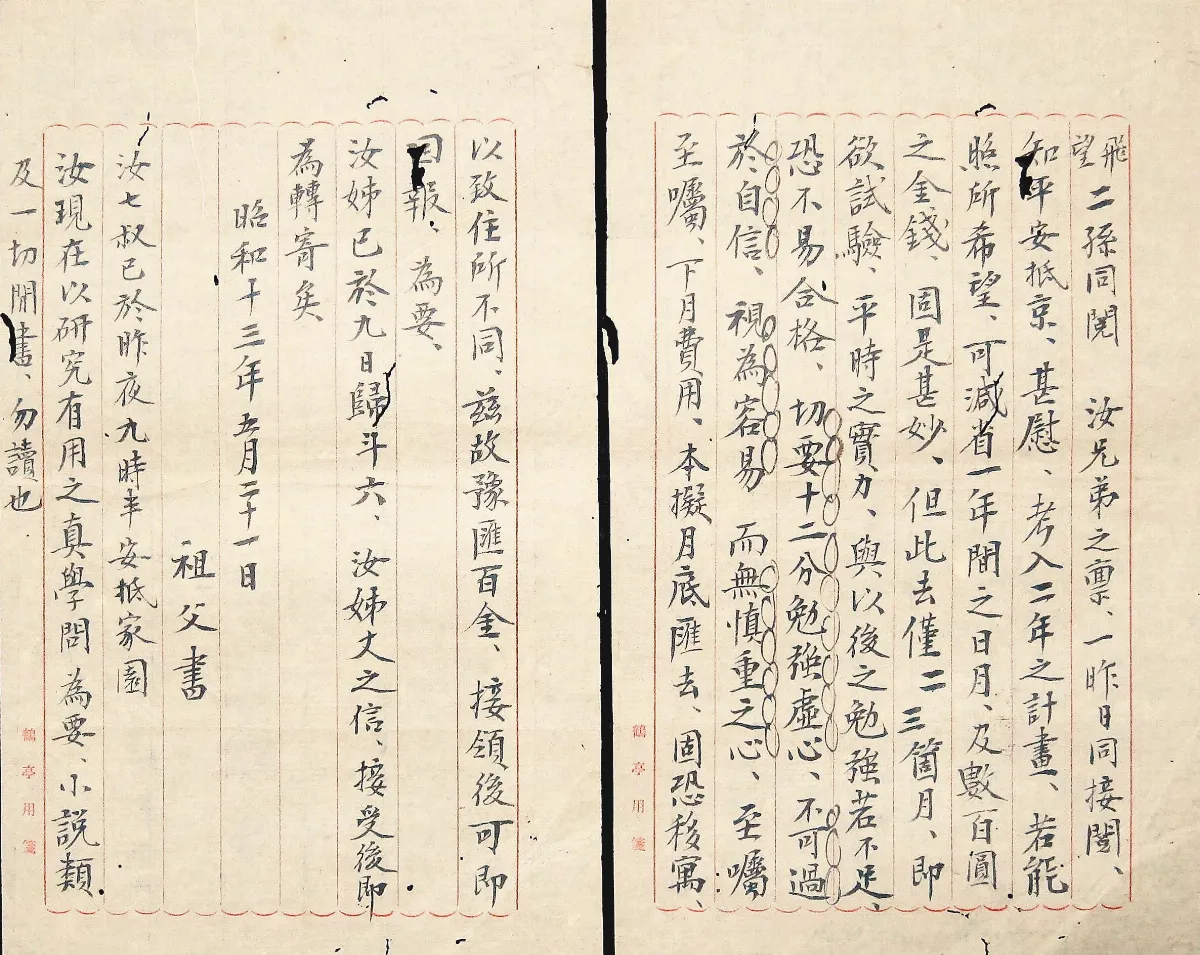 飛望二孫同閱　汝兄弟之稟、一昨日同接閱、
知平安抵京、甚慰、考入二年之計畫、若能
照所希望、可減省一年間之日月、及數百圓
之金錢、固是甚妙、但此去僅二三箇月、即
欲試驗、平時之實力、與以後之勉強若不足、
恐不易合格、切要十二分勉強虛心、不可過
於自信、視為容易　而無慎重之心、至囑
至囑、下月費用、本擬月底匯去、固恐移寓、
鶴亭用箋
以致住所不同、茲故豫匯百金、接領後可即
回報、為要、
汝姊已於九日歸斗六、汝姊丈之信、接受後即
為轉寄矣
昭和十三年五月二十一日
祖父書
汝七叔已於昨夜九時半安抵家園
汝現在以研究有用之真學問為要、小説類
及一切閒書、勿讀也
鶴亭用箋